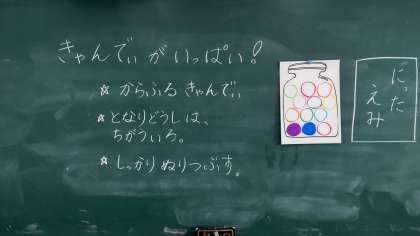 きゃんでぃがいっぱい!
☆からふるきゃんでぃ
☆となりどうしは、
ちがういろ。
☆しっかりぬりつぶす。
にった
えみ